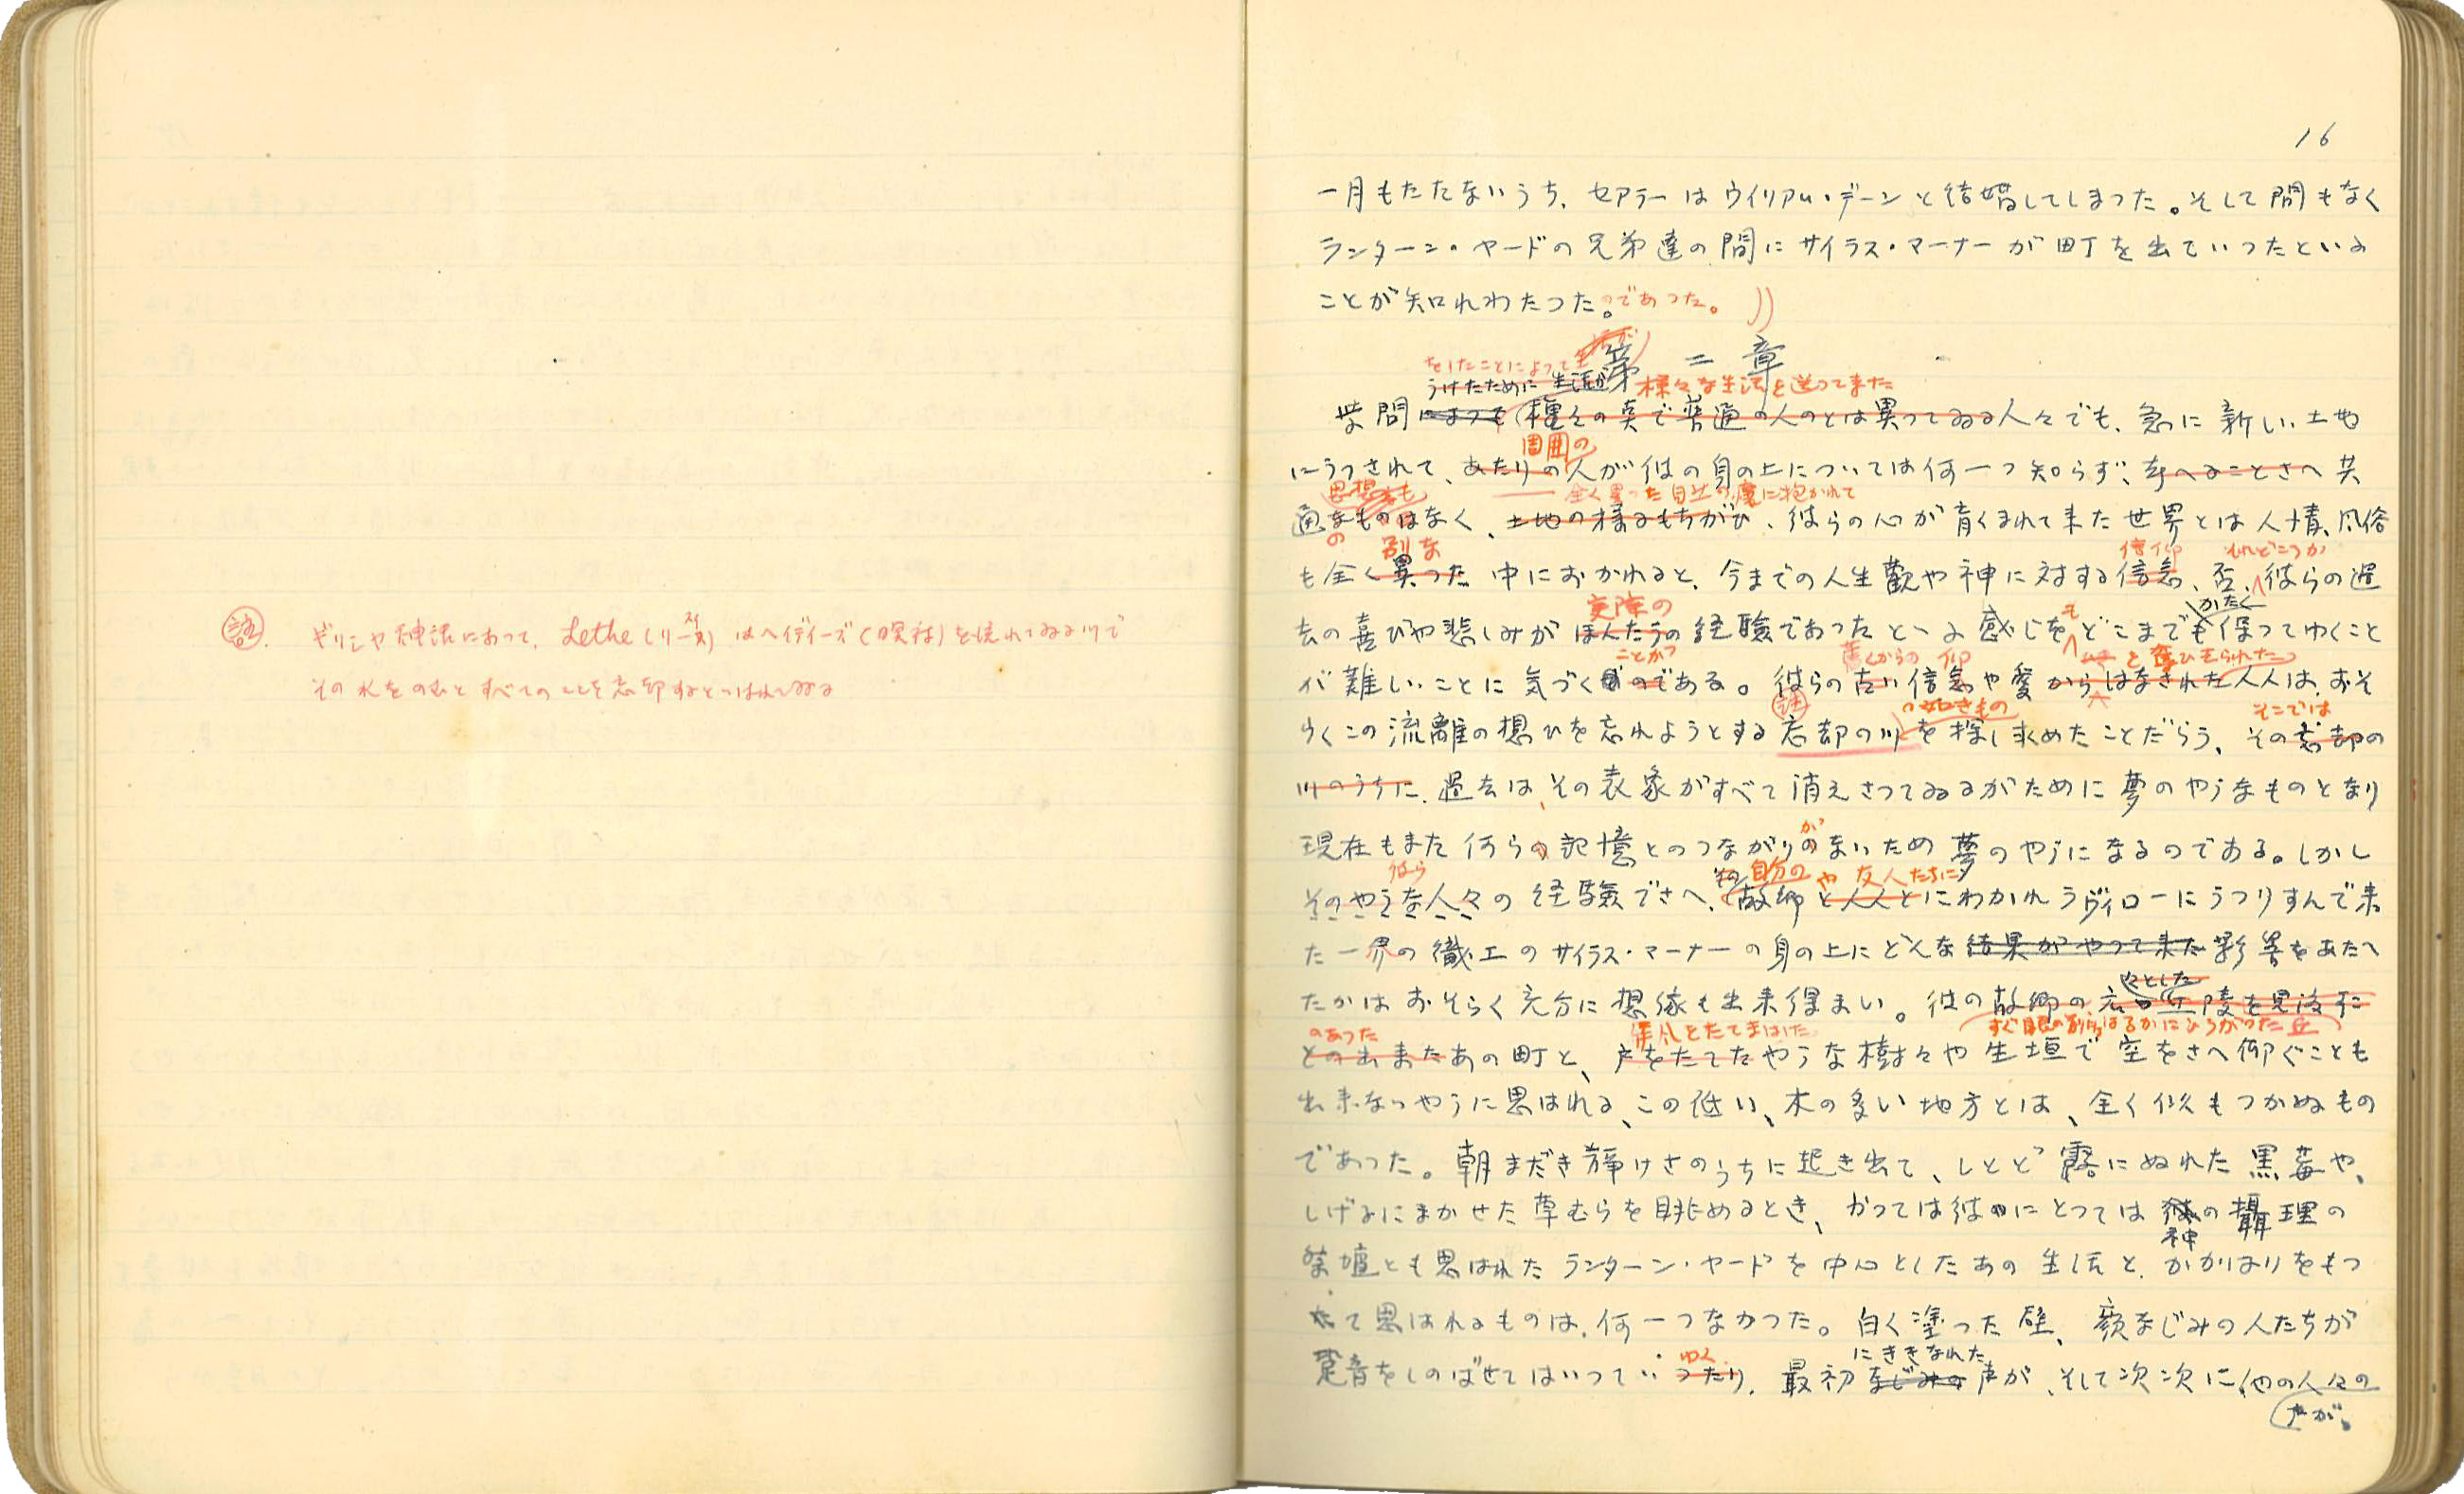 註. ギリシャ神話にあって、Lethe (リース) はヘイディーズ(冥社)を流れてゐる川で
その水をのむとすべてのことを忘却するといはれてゐる
16
一月もたたないうち、セアラーはウイリアム・デーンと結婚してしまつた。そして間もなく
ランターン・ヤードの兄弟達の間にサイラス・マーナーが町を出ていつたといふ
ことが知れわたつた。のであつた。
第二章
をしたことによつて
うけたために 生活が 様々な生活を送つてきた
学問によつても種々の点で普通の人のとは異つてゐる人々でも、急に新しい土地
周囲の
にうつされて、あたりの人が彼の身の上については何一つ知らず、考へることさへ共
思想 全く異つた自然の懐に抱かれて
通なものはなく、土地の様子もちがひ、彼らの心が育くまれて来た世界とは人情、風俗
の 別な 信仰 それどころか
も全く異つた中におかれると、今までの人生觀や神に対する信念、否、彼らの過
実際の も かたく
去の喜びや悲しみがほんたうの経験であつたといふ感じをどこまでも保つてゆくこと
ことが 古くからの 仰 と奪ひ去られた
が難しいことに気づくのである。彼らの古い信念や愛からはなされた人人は、おそ
註 の如きもの そこでは
らくこの流離の想ひを忘れようとする忘却の川を探し求めたことだらう、その忘却の
川のうちに、過去は、その表象がすべて消えさつてゐるがために夢のやうなものとなり
が
現在もまた何らの記憶とのつながりのないため夢のやうになるのである。しかし
彼ら その 自分の や 友人たちに
そのやうな人々の経験でさへ、故郷と人人とにわかれラヴィローにうつりすんで来
た一介の織工のサイラス・マーナーの身の上にどんな結果がやつて来た影響をあたへ
々とした
たかはおそらく充分に想像も出来得まい。彼の故郷の、広い丘陵を見渡すこ
のあつた すぐ眼の前からはるかにひろがつた丘
との出来たあの町と、戸をたてたやうな樹々や生垣で空をさへ仰ぐことも
出来ないやうに思はれる、この低い、木の多い地方とは、全く似もつかぬもの
であつた。朝まだき静けさのうちに起き出て、しとど露にぬれた黒莓や、
しげるにまかせた草むらを眺めるとき、かつては彼にとつては神の攝理の
祭壇とも思はれたランターン・ヤードを中心としたあの生活と、かかはりをもつ
て思はれるものは、何一つなかつた。白く塗つた壁、顔なじみの人たちが
ゆく にききなれた
跫音をしのばせてはいつていつたり、最初なじみの声が、そして次次に、他の人々の
声が、